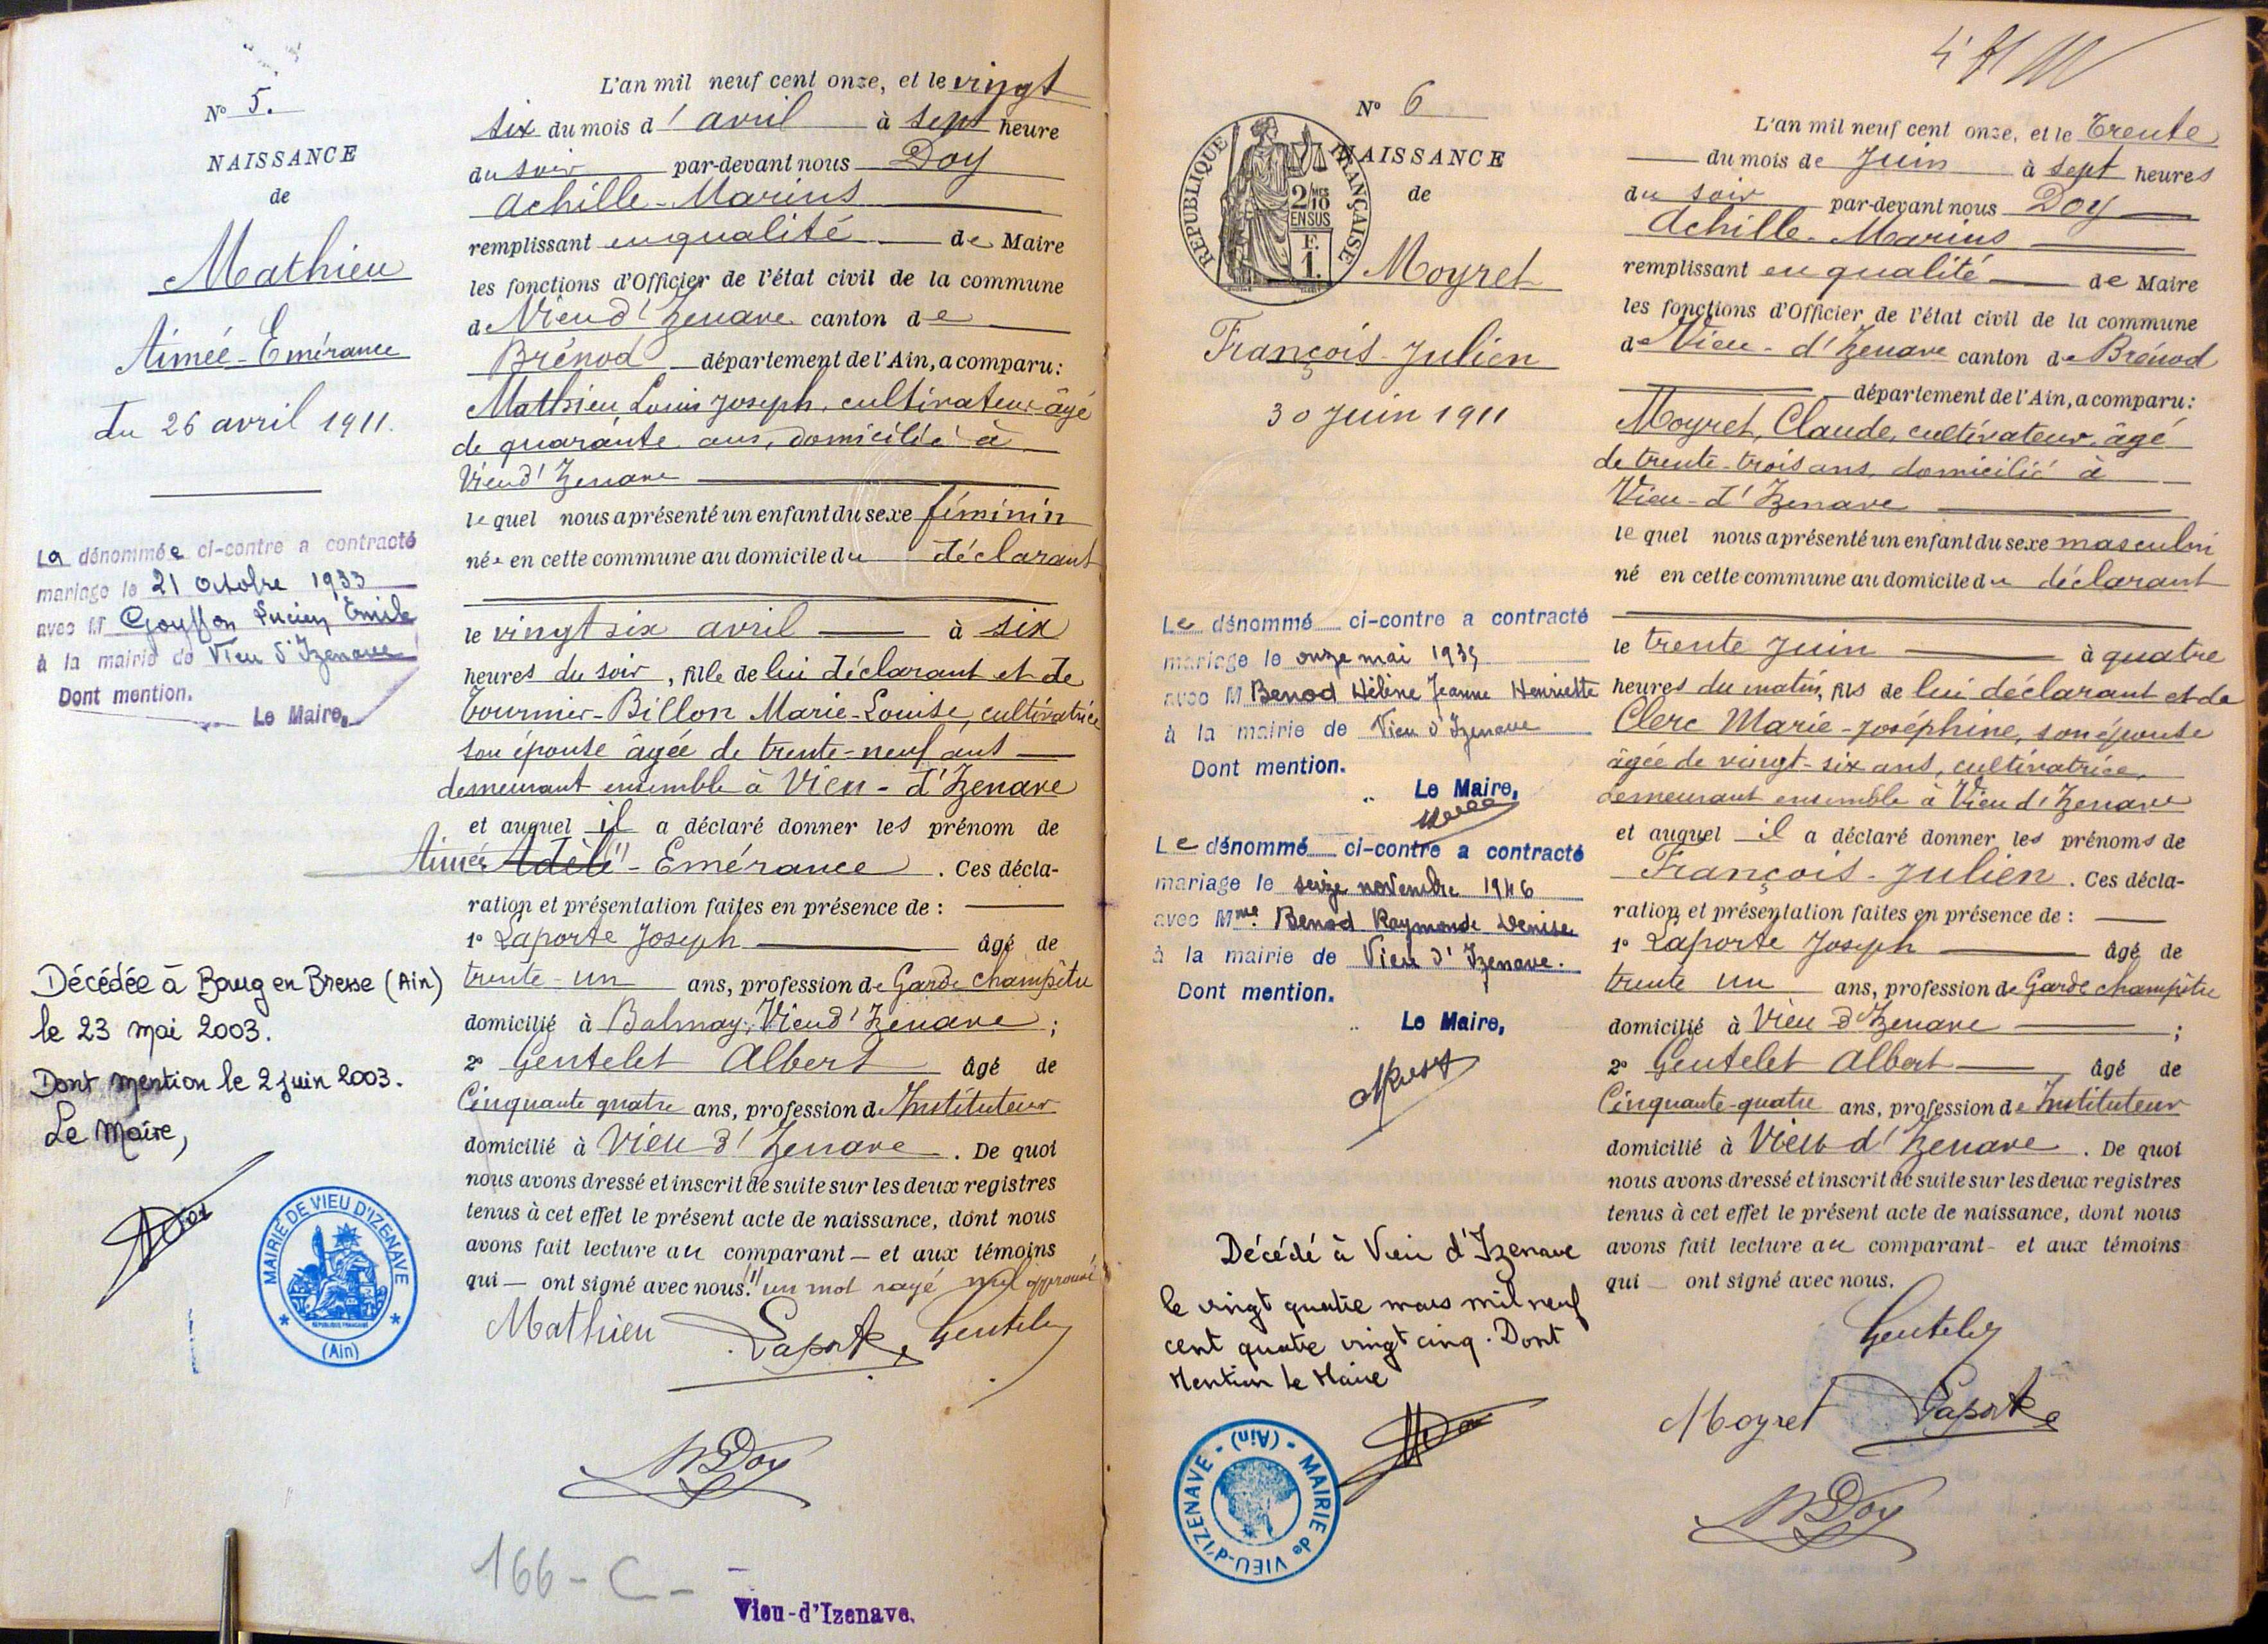 N° 5.
NAISSANCE
de
Mathieu
Aimée-Emérance
du 26 avril 1911.
La dénommée ci-contre a contracté
mariage le 21 octobre 1933
avec Mr Gouffon Lucien Emile
à la mairie de Vieu d'Izenave
Dont mention.
Le Maire,
Décédée à Bourg en Bresse (Ain)
le 23 mai 2003.
Dont mention le 2 juin 2003.
Le Maire,
MAIRIE DE VIEU D'IZENAVE
REPUBLIQUE FRANÇAISE
(Ain)
L'an mil neuf cent onze, et le vingt
six du mois d'avril à sept heure
du soir par-devant nous Doy
Achille-Marius
remplissant en qualité de Maire
les fonctions d'Officier de l'état civil de la commune
de Vieu d'Izenave canton de
Brénod département de l'Ain, a comparu :
Mathieu Louis Joseph, cultivateur âgé
de quarante ans, domicilié à
Vieu d'Izenave
lequel nous a présenté un enfant du sexe féminin
née en cette commune au domicile du déclarant
le vingt six avril à six
heures du soir, fille de lui déclarant et de
Tournier-Billon Marie-Louise, cultivatrice
son épouse âgée de trente-neuf ans
demeurant ensemble à Vieu-d'Izenave
et auquel il a déclaré donner les prénom de
Aimée Adèle (1) - Emérance. Ces décla-
ration et présentation faites en présence de :
1° Laporte Joseph âgé de
trente-un ans, profession de Garde champêtre
domicilié à Balmay, Vieu d'Izenave ;
2° Gentelet Albert âgé de
Cinquante quatre ans, profession d'Instituteur
domicilié à Vieu d'Izenave. De quoi
nous avons dressé et inscrit de suite sur les deux registres
tenus à cet effet le présent acte de naissance, dont nous
avons fait lecture au comparant — et aux témoins
qui — ont signé avec nous. (1) un mot rayé nul approuvé
Mathieu Laporte Gentelet
Doy
166 - C -
Vieu-d'Izenave.
N° 6
NAISSANCE
de
REPUBLIQUE FRANÇAISE
2/10
MES
EN SUS
F.
1.
Moyret
François-Julien
30 Juin 1911
Le dénommé ci-contre a contracté
mariage le onze mai 1935
avec M Benod Hélène Jeanne Henriette
à la mairie de Vieu d'Izenave
Dont mention.
Le Maire,
Le dénommé ci-contre a contracté
mariage le seize novembre 1946
avec Mme Benod Raymonde Denise
à la mairie de Vieu d'Izenave.
Dont mention.
Le Maire,
Décédé à Vieu d'Izenave
le vingt quatre mars mil neuf
cent quatre vingt cinq. Dont
Mention Le Maire
MAIRIE de VIEU-d'IZENAVE - (Ain) -
L'an mil neuf cent onze, et le Trente
du mois de Juin à sept heures
du soir par-devant nous Doy
Achille-Marius
remplissant en qualité de Maire
les fonctions d'Officier de l'état civil de la commune
de Vieu-d'Izenave canton de Brénod
département de l'Ain, a comparu :
Moyret, Claude, cultivateur, âgé
de trente-trois ans, domicilié à
Vieu-d'Izenave
lequel nous a présenté un enfant du sexe masculin
né en cette commune au domicile du déclarant
le trente Juin à quatre
heures du matin, fils de lui déclarant et de
Clerc Marie-Joséphine, son épouse
âgée de vingt-six ans, cultivatrice,
demeurant ensemble à Vieu d'Izenave
et auquel il a déclaré donner les prénoms de
François-Julien. Ces décla-
ration et présentation faites en présence de :
1° Laporte Joseph âgé de
trente un ans, profession de Garde champêtre
domicilié à Vieu d'Izenave ;
2° Gentelet Albert âgé de
Cinquante-quatre ans, profession d'Instituteur
domicilié à Vieu d'Izenave. De quoi
nous avons dressé et inscrit de suite sur les deux registres
tenus à cet effet le présent acte de naissance, dont nous
avons fait lecture au comparant - et aux témoins
qui — ont signé avec nous.
Gentelet
Moyret Laporte
Doy